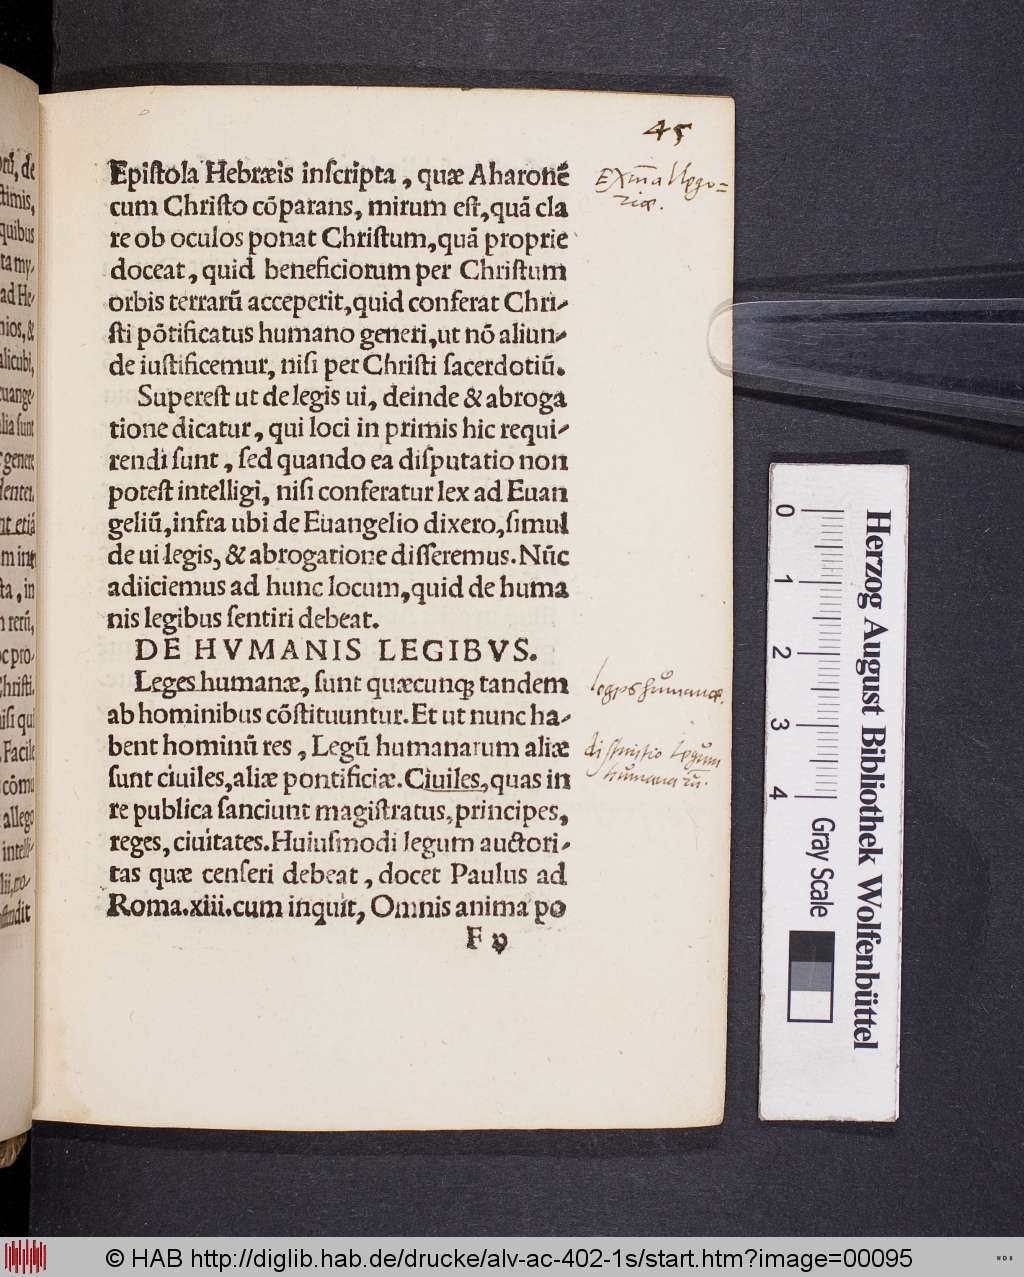 45
Epiſtola Hebræis inſcripta, quæ Aharonẽ
cum Chriſto cõparans, mirum eſt, quã cla
re ob oculos ponat Chriſtum, quã proprie
doceat, quid beneficiorum per Chriſtum
orbis terrarũ acceperit, quid conferat Chri-
ſti põtificatus humano generi, ut nõ aliun-
de iuſtificemur, niſi per Chriſti ſacerdotiũ.
Supereſt ut de legis ui, deinde & abroga
tione dicatur, qui loci in primis hic requi-
rendi ſunt, ſed quando ea diſputatio non
poteſt intelligi, niſi conferatur lex ad Euan
geliũ, infra ubi de Euangelio dixero, ſimul
de ui legis, & abrogatione diſſeremus. Nũc
adiiciemus ad hunc locum, quid de huma
nis legibus ſentiri debeat.
DE HVMANIS LEGIBVS.
Leges humanæ, ſunt quæcunqꝫ tandem
ab hominibus cõſtituuntur. Et ut nunc ha-
bent hominũ res, Legũ humanarum aliæ
ſunt ciuiles, aliæ pontificiæ. Ciuiles, quas in
re publica ſanciunt magiſtratus, principes,
reges, ciuitates. Huiuſmodi legum auctori-
tas quæ cenſeri debeat, docet Paulus ad
Roma. xiii. cum inquit, Omnis anima po
F v
leges humanæ.
diſtinctio legum
humanarũ.
orũ, de
ſtimis,
quibus
ta my-
ad He-
nios, &
alicubi,
euange
alia ſunt
genere
dentet.
nt etiã
m int
ta, in
n rerũ,
oc pro-
Chriſti.
niſi qui
Facile
cõmu
allego
intelli-
0 1 2 3 4
Gray Scale
Herzog August Bibliothek Wolfenbüttel
© HAB http://diglib.hab.de/drucke/alv-ac-402-1s/start.htm?image=00095